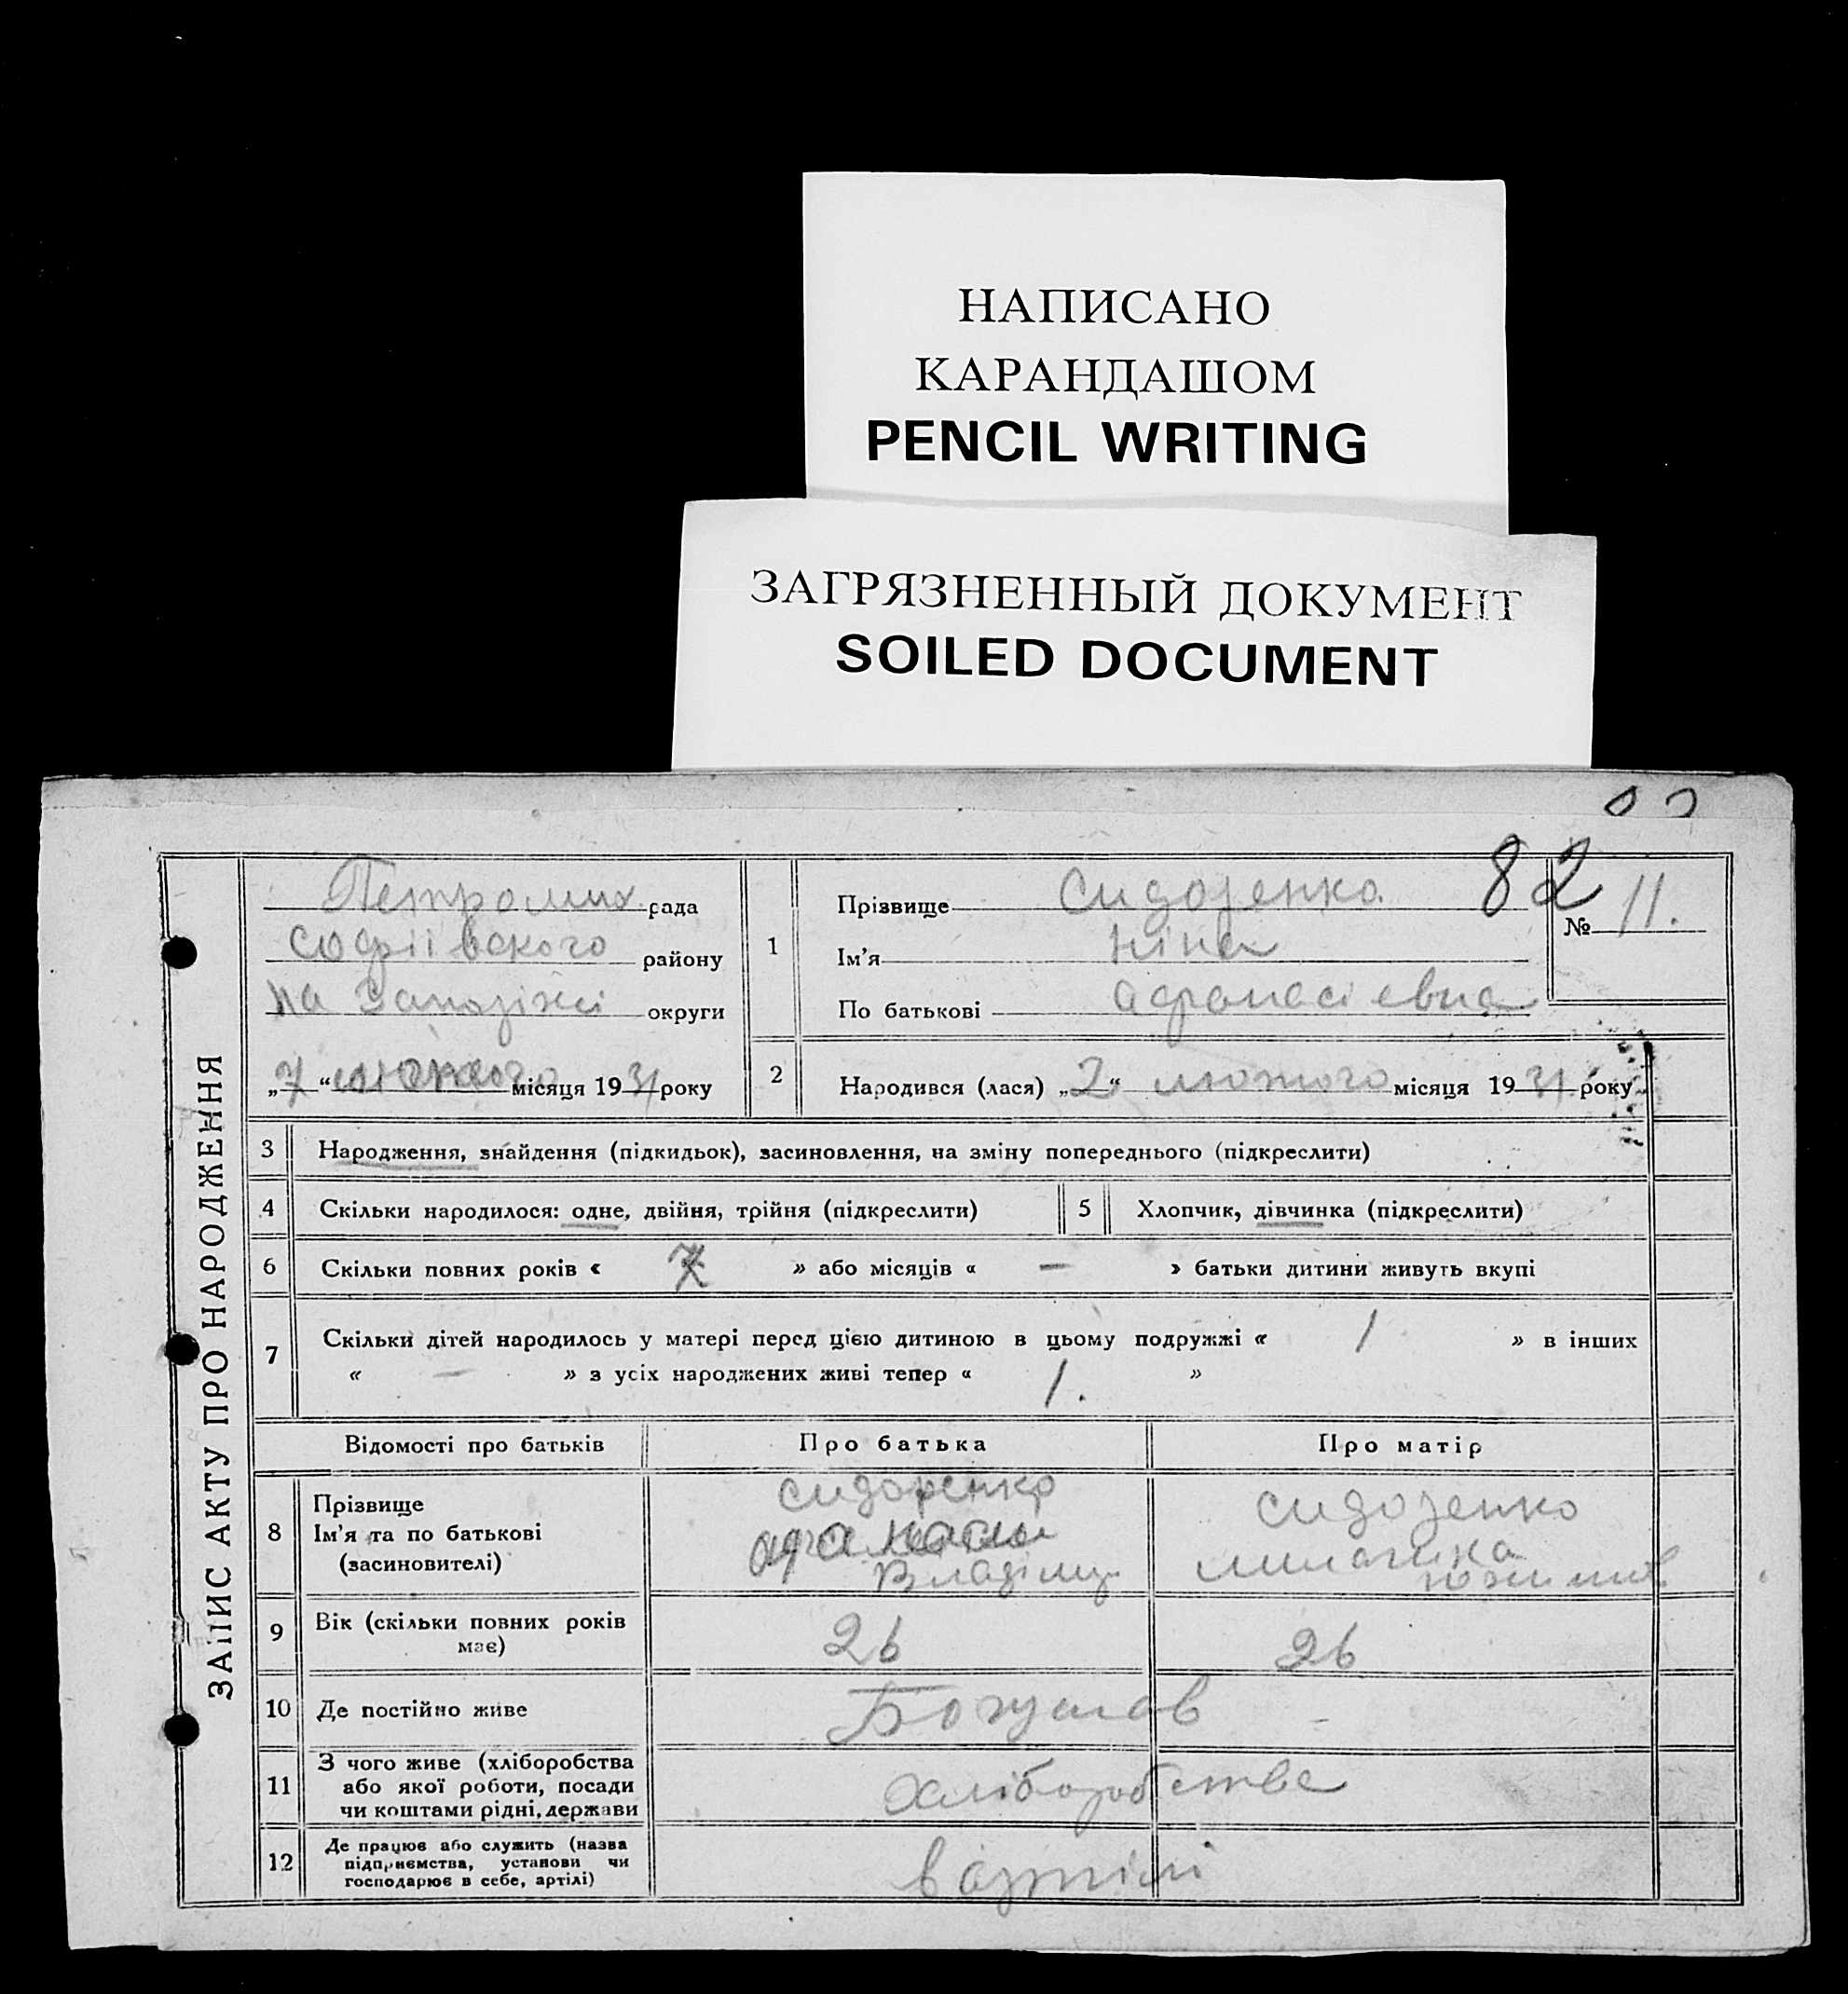 НАПИСАНО
КАРАНДАШОМ
PENCIL WRITING
ЗАГРЯЗНЕННЫЙ ДОКУМЕНТ
SOILED DOCUMENT
82
ЗАПИС АКТУ ПРО НАРОДЖЕННЯ
рада
Софіївского району
на Запоріжжі округи
„7“ лютого місяця 1931 року
1
Прізвище Сидоренко
Ім’я Ніна
По батькові Афонасієвна
№ 11.
2
Народився (лася) „2“ лютого місяця 1931 року
3 Народження, знайдення (підкидьок), засиновлення, на зміну попереднього (підкреслити)
4 Скільки народилося: одне, двійня, трійня (підкреслити)
5 Хлопчик, дівчинка (підкреслити)
6 Скільки повних років « » або місяців « — » батьки дитини живуть вкупі
7 Скільки дітей народилось у матері перед цією дитиною в цьому подружжі « 1 » в інших
« — » з усіх народжених живі тепер « 1. »
Відомості про батьків Про батька Про матір
8 Прізвище
Ім’я та по батькові
(засиновителі)
Сидоренко
Владімір
Сидоренко
9 Вік (скільки повних років
має)
26 26
10 Де постійно живе Богуслав
11 З чого живе (хліборобства
або якої роботи, посади
чи коштами рідні, держави
Хліборобства
12 Де працює або служить (назва
підприємства, установи чи
господарює в себе, артілі)
в артілі